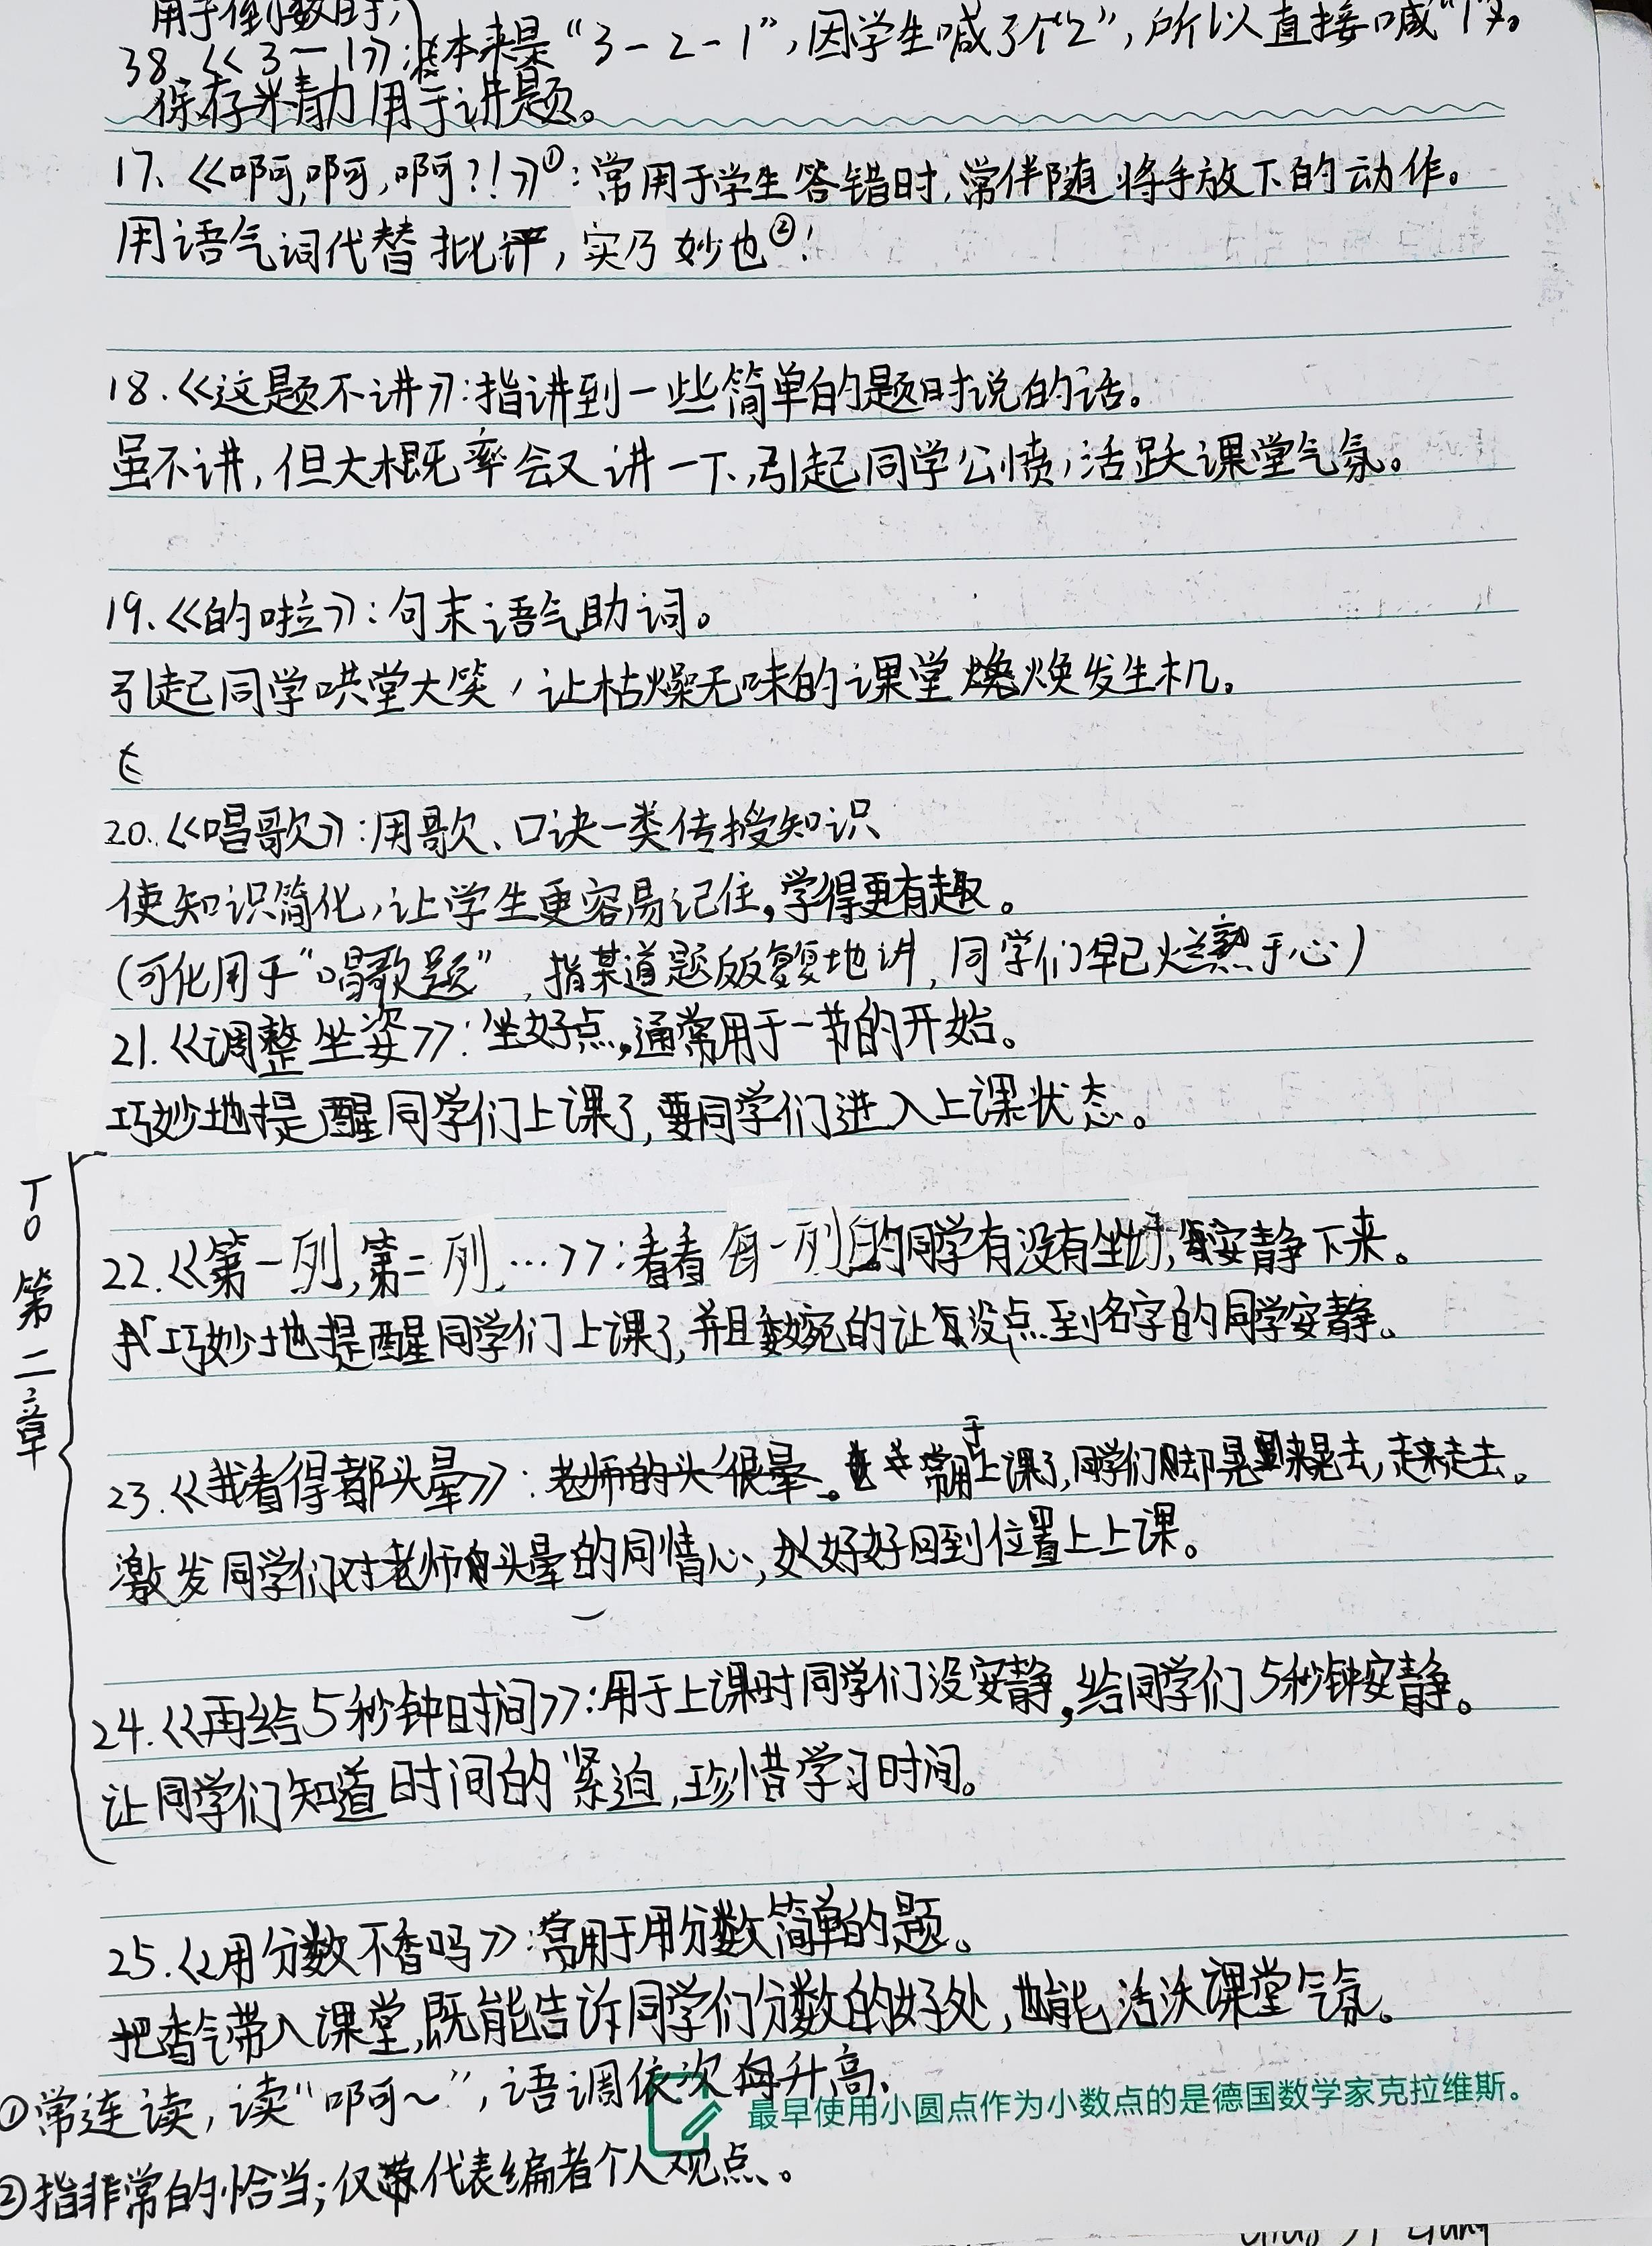 用于倒数时,
38.《3-1》:本来是“3-2-1”,因学生喊了个“2”,所以直接喊“1”。
保存精力用于讲题。
17、《啊,啊,啊?!》①:常用于学生答错时,常伴随将手放下的动作。
用语气词代替批评,实乃妙也②!
18.《这题不讲》:指讲到一些简单的题时说的话。
虽不讲,但大概率会又讲一下,引起同学公愤,活跃课堂气氛。
19、《的啦》:句末语气助词。
引起同学哄堂大笑,让枯燥无味的课堂焕发生机。
20.《唱歌》:用歌、口诀一类传授知识
使知识简化,让学生更容易记住,学得更有趣。
(可化用于“唱歌题”,指某道题反反复复地讲,同学们早已烂熟于心)
21.《调整坐姿》:坐好点,通常用于一节的开始。
巧妙地提醒同学们上课了,要同学们进入上课状态。
TO第二章
22.《第一列,第二列,…》:看看每一列的同学有没有坐好,安静下来。
巧妙地提醒同学们上课了,并且委婉的让没点到名字的同学安静。
23.《我看得都头晕》:老师的头很晕。常用于上课了,同学们脚晃来晃去,走来走去。
激发同学们对老师头晕的同情心,好好回到位置上上课。
24.《再给5秒钟时间》:用于上课时同学们没安静,给同学们5秒钟安静。
让同学们知道时间的紧迫,珍惜学习时间。
25.《用分数不香吗》:常用于用分数简单的题。
把香气带入课堂,既能告诉同学们分数的好处,也能活沃课堂气氛。
①常连读,读“啊~”,语调依次升高、
最早使用小圆点作为小数点的是德国数学家克拉维斯。
②指非常的恰当;仅代表编者个人观点、。